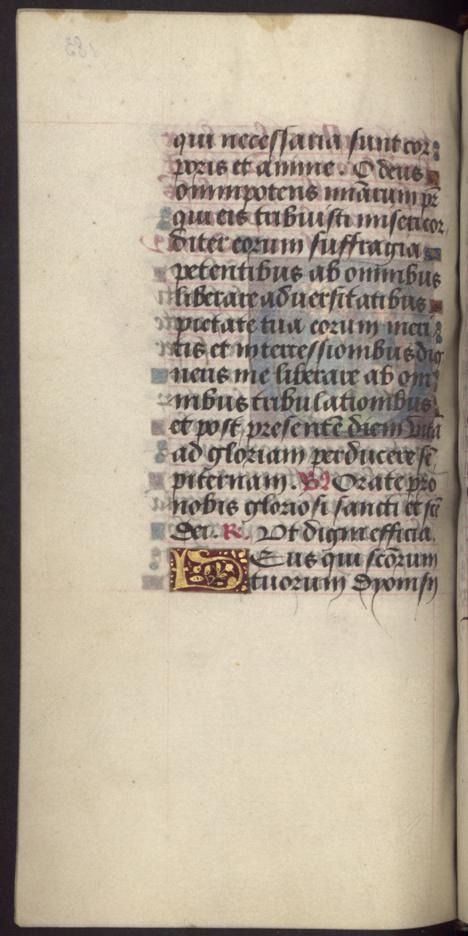 qui necessaria sunt cor
poris et anime. O deus
omnipotens
qui eis tribuisti misericor
diter eorum suffragia
petentibus ab omnibus
liberare adversitatibus
pietate tua eorum meri
tis et intercessionibus dig
neris me liberare ab om
nibus tribulationibus
et post presentē diem vita
ad gloriam perducere sē
piternam. Orate pro
nobis gloriosi sancti et scē
Dei. R. Ut digni efficia
DEus qui scōrum
tuorum Dyonisii